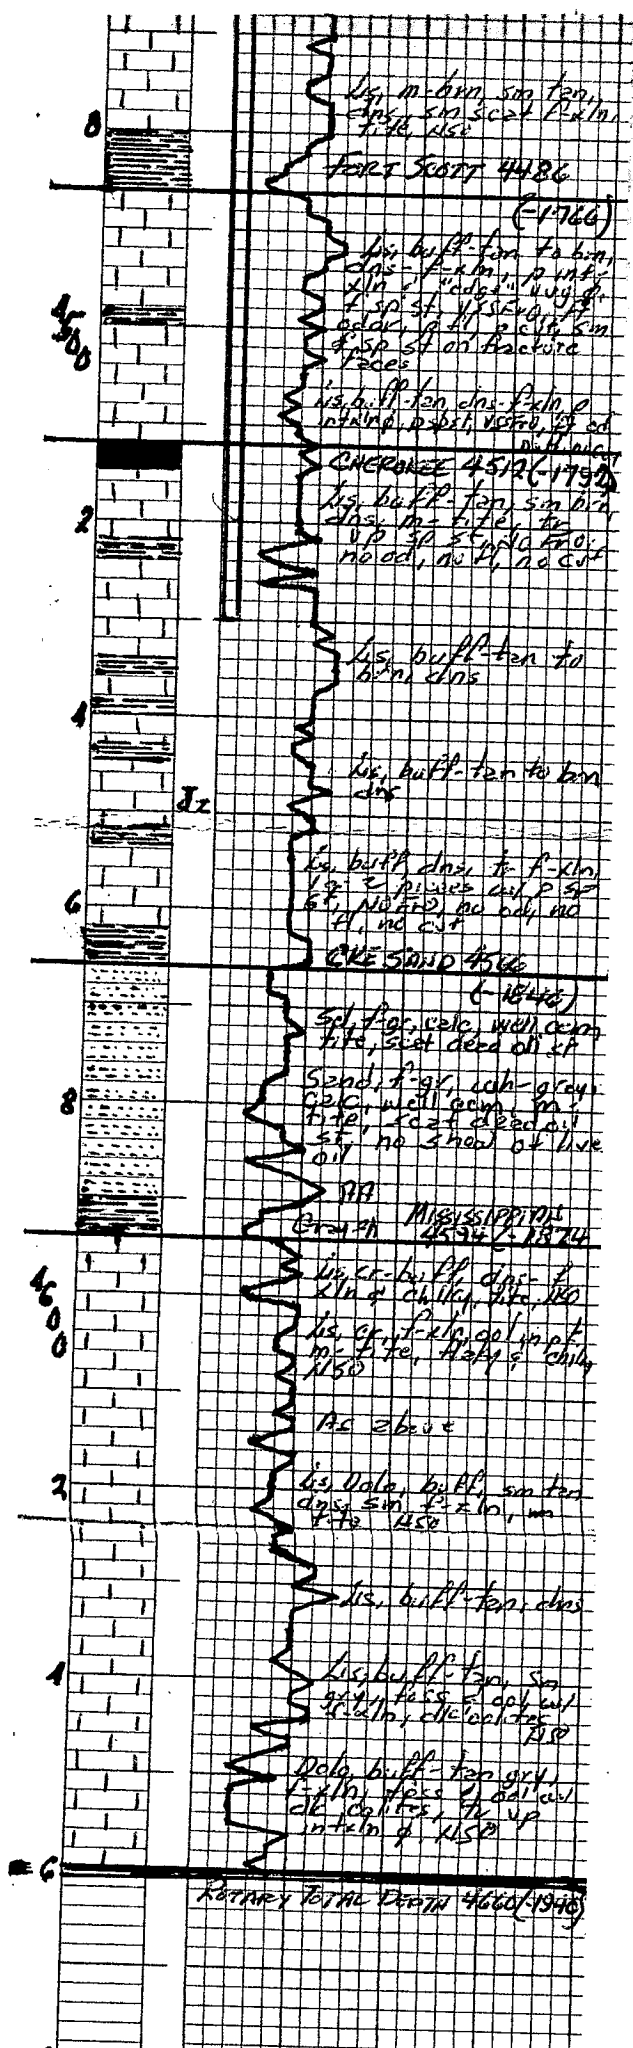 Ls, m-brn, sm tan,
dns, sm scat f-xln,
tite, NSO
8
FORT SCOTT 4486
(-1766)
Ls, buff-tan to brn,
dns-f-xln, p int-
xln & "edge" vug
sp st,
odor, sm
sp st on fracture
faces
4500
Ls, buff-tan, dns-f-xln, p
intxln
CHEROKEE 4512 (-1792)
Ls, buff-tan, sm brn,
dns, m-tite, tr
vp sp st, No Fro,
no od, no fl, no cut
2
Ls, buff-tan to
brn, dns
4
Ls, buff-tan to brn
dns
Ls, buff, dns, tr f-xln,
1 or 2 pieces w/ p sp
st, No Fro, no od, no
fl, no cut
6
CKE SAND 4566
(-1846)
Sd, f-gr, calc, well cem,
tite, scat dead oil sp
Sand, f-gr, wh-grey,
calc, well cem, m-
tite, scat dead oil
st, no show of live
oil
8
AA
MISSISSIPPIAN
4594 (-1874
Ls, cr-buff, dns-f
xln & chlky, tite, NSO
4600
Ls, cr, f-xln, ool in pt
m-tite, & chlky
NSO
As above
Ls, Doln, buff, sm tan
dns, sm f-xln, m
tite NSO
2
Ls, buff-tan, dns
Ls, buff-tan, sm
gry, foss & ool, w/
f-xln, dk oolites
NSO
4
Dolo, buff-tan gry,
f-xln, foss & ool w/
dk oolites, tr vp
intxln ø NSO
6
ROTARY TOTAL DEPTH 4660 (-1940)